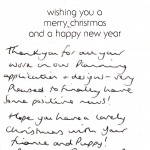 wishing you a
merry christmas
and a happy new year
Thank you for all your
work in our Planning
application + designs - very
Pleased to finally have
some positive news!
Hope you have a lovely
Christmas with your
fiance and Puppy!